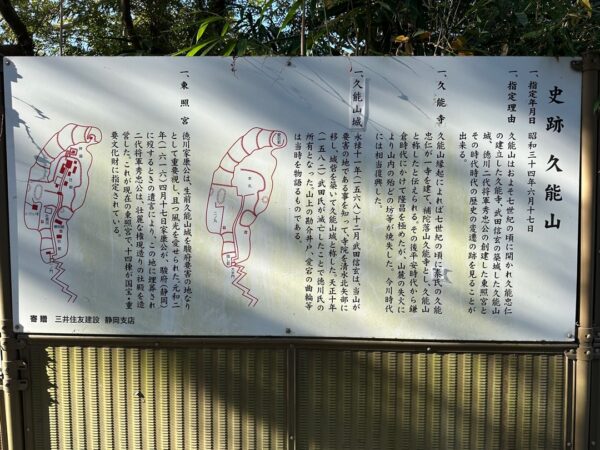 史跡 久能山
一、指定年月日 昭和三十四年六月十七日
一、指定理由 久能山はおよそ七世紀の頃に開かれ久能忠仁
の建立した久能寺、武田信玄の築城した久能山
城、徳川二代将軍秀忠公の創建した東照宮と
その時代時代の歴史の変遷の跡を見ることが
出来る。
一、久能寺
久能山縁起によれば七世紀の頃に秦氏の久能
忠仁が一寺を建て、補陀落山久能寺とし、久能山
と称したと伝えられる。その後平安時代から鎌
倉時代にかけて隆昌を極めたが、山麓の失火に
より山内の殆どの坊等が焼失した。今川時代
には相当復興した。
一、久能山城
永禄十一年(一五六八)十二月武田信玄は、当山が
要害の地である事を知って、寺院を清水北矢部に
移し、城砦を築いて久能山城と称した。天正十年
(一五八二)武田氏が滅亡したことで徳川氏の
所有となった。山上の勘介井戸、愛宕の曲輪等
は当時を物語るものである。
一、東照宮
徳川家康公は、生前久能山城を駿府要害の地なり
として重要視し、且つ風光を愛せられた。元和二
年(一六一六)四月十七日家康公が、駿府(静岡)
に歿するときの遺言により、この地に埋葬され
二代将軍秀忠公は壮麗な権現造りの社殿を造
営した。これが現在の東照宮で、十四棟が国宝・重
要文化財に指定されている。
寄贈 三井住友建設 静岡支店